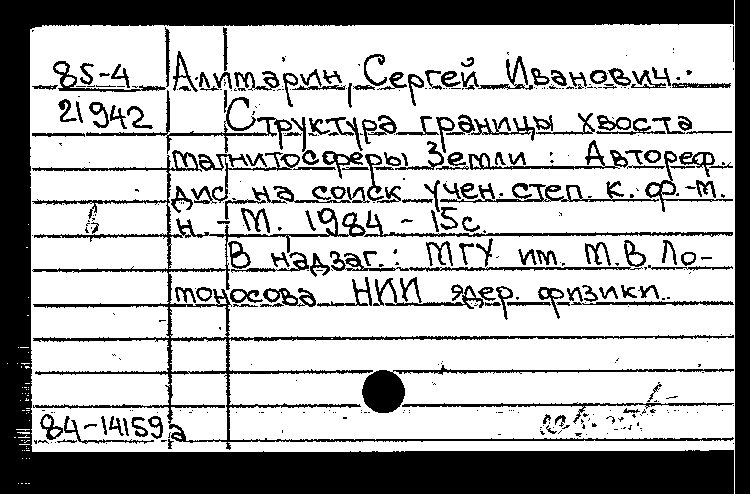 85-4 Алимарин, Сергей Иванович.
21942 Структура границы хвоста
магнитосферы Земли : Автореф.
дис. на соиск учен. степ. к. ф.-м.
н. - М. 1984 - 15с.
В надзаг.: МГУ им. М.В. Ло-
моносова НИИ ядер. физики.
84-14159а